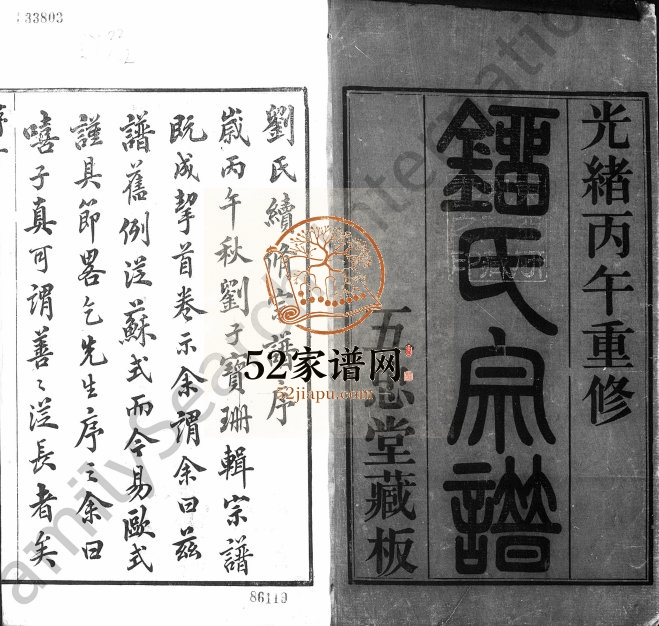 光緒丙午重修
鎦氏宗譜
五忠堂藏板
劉氏續脩宗譜序
歲丙午秋劉子寶珊輯宗譜
既成挈首卷示余謂余曰茲
譜舊例從蘇式而今易歐式
謹具節畧乞先生序之余曰
嘻子真可謂善〻從長者矣
序一
33803
86119
52家谱网
52jiapu.com
amilySearch International